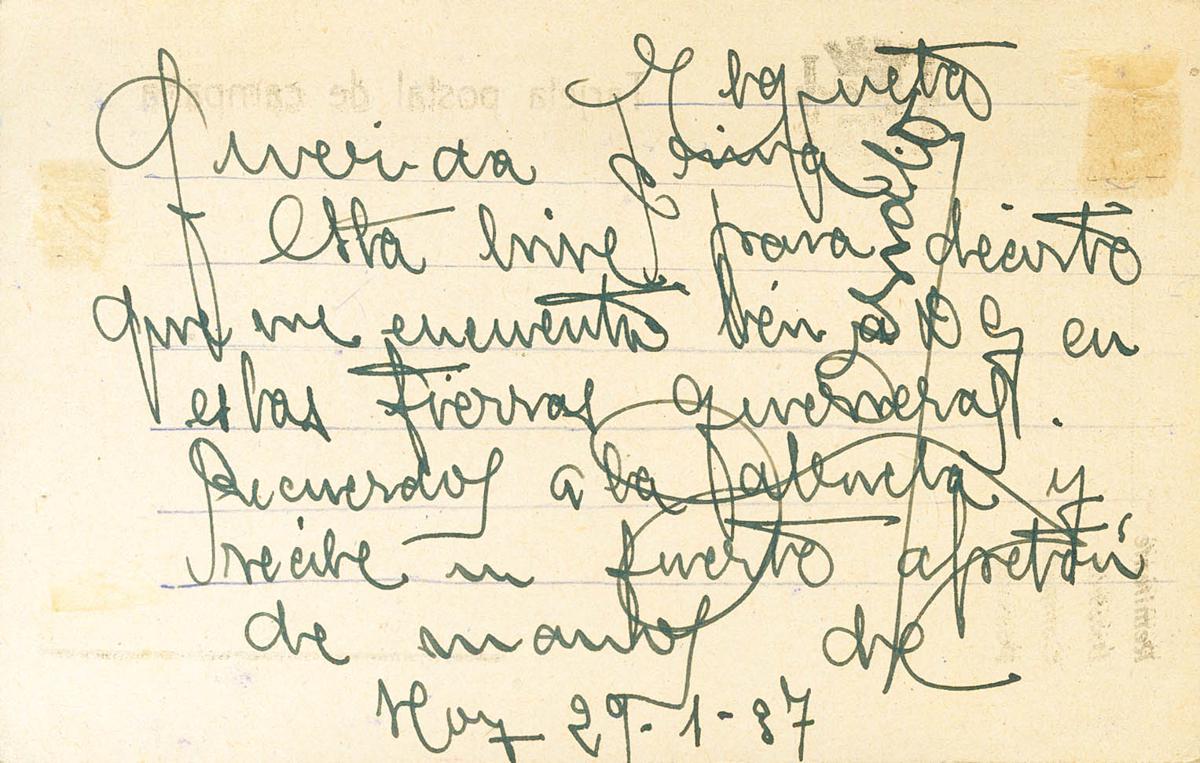 Querida
Esta sirve para decirte
que me encuentro bien a D G en
estas tierras guerreras.
Recuerdos a la y
recibe un fuerte apretón
de manos de
Hoy 29-1-37
Tarjeta postal de campaña